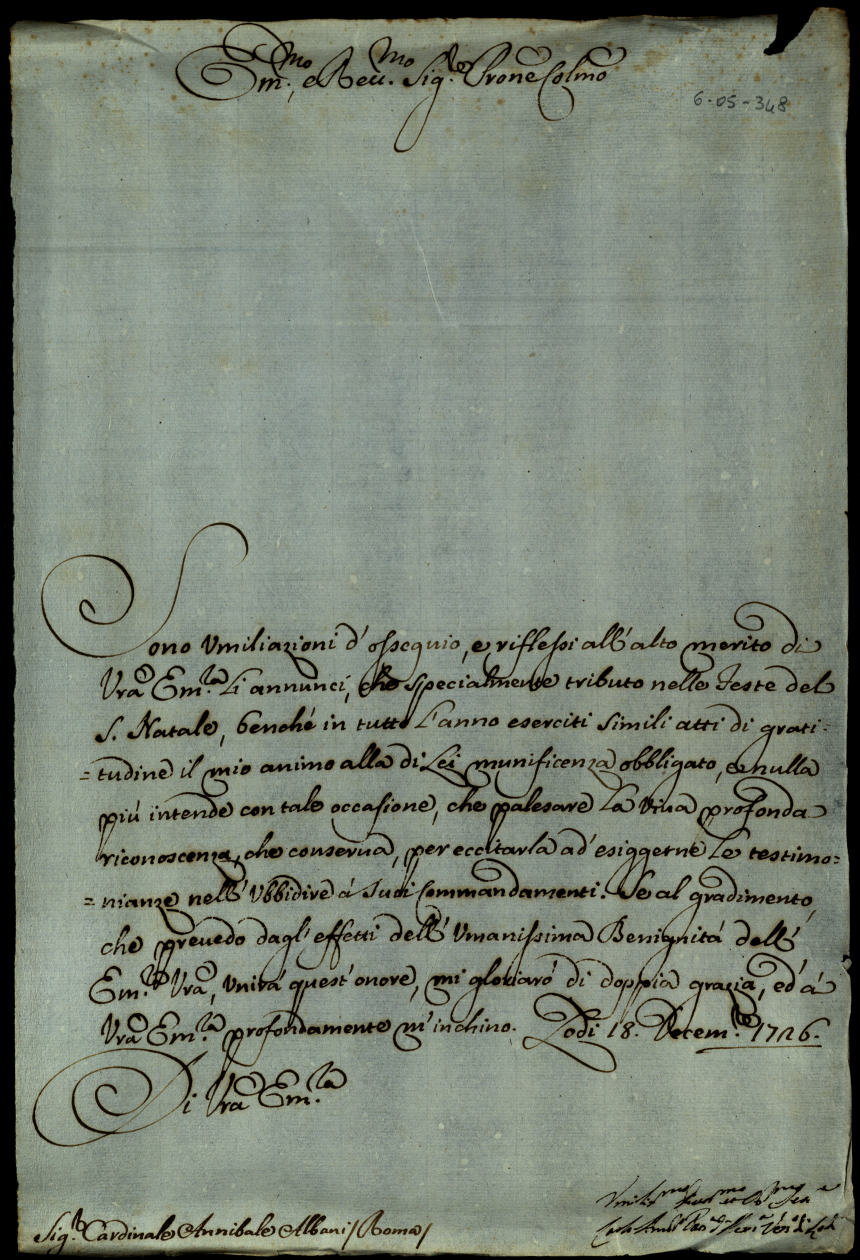 Em.mo, e Reu.mo Sig.re Prone Colmo
6-05-348
Sono Vmiliazioni d'ossequio, e riflessi all'alto merito di
Vra Em.za li annunci, che specialmente tributo nelle Feste del
S. Natale, benché in tutto l'anno eserciti simili atti di grati=
=tudine il mio animo alla di Lei munificenza obbligato, e nulla
piú intende con tale occasione, che palesare la viua profonda
riconoscenza, che conserua, per eccitarla ad esiggerne le testimo=
=nianze nell'Vbbidire á Suoi Commandamenti. Se al gradimento,
che preuedo dagl'effetti dell'Vmanissima Benignitá dell'
Em.za Vra, unirá quest'onore, mi gloriaró di doppia grazia, ed á
Vra Em.za profondamente m'inchino. Lodi 18. Decem.bre 1726.
Di Vra Em.za
Sig.r Cardinale Annibale Albani / Roma /